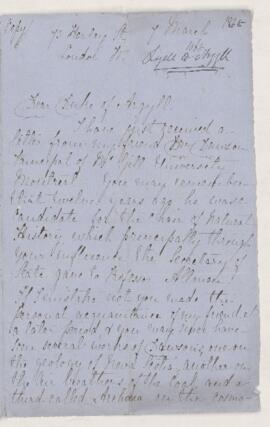 Copy
73 Harley St 7 March 1865
London W.
Lyell to Argyll
Dear Duke of Argyll.
I have just received a
letter from my friend Dr Dawson
Principal of McGill University
Montreal. You may remember
that twelve years ago he was a
candidate for the Chair of Natural
History which principally through
your influence the Secretary of
State gave to Professor Allman
If I mistake not you made the
personal acquaintance of my friend at
a later period & you may since have
seen several works of Dawson's, one on
the geology of Nova Scotia, another on
the air breathers of the Coal, and a
third called Archaia on the cosmo-